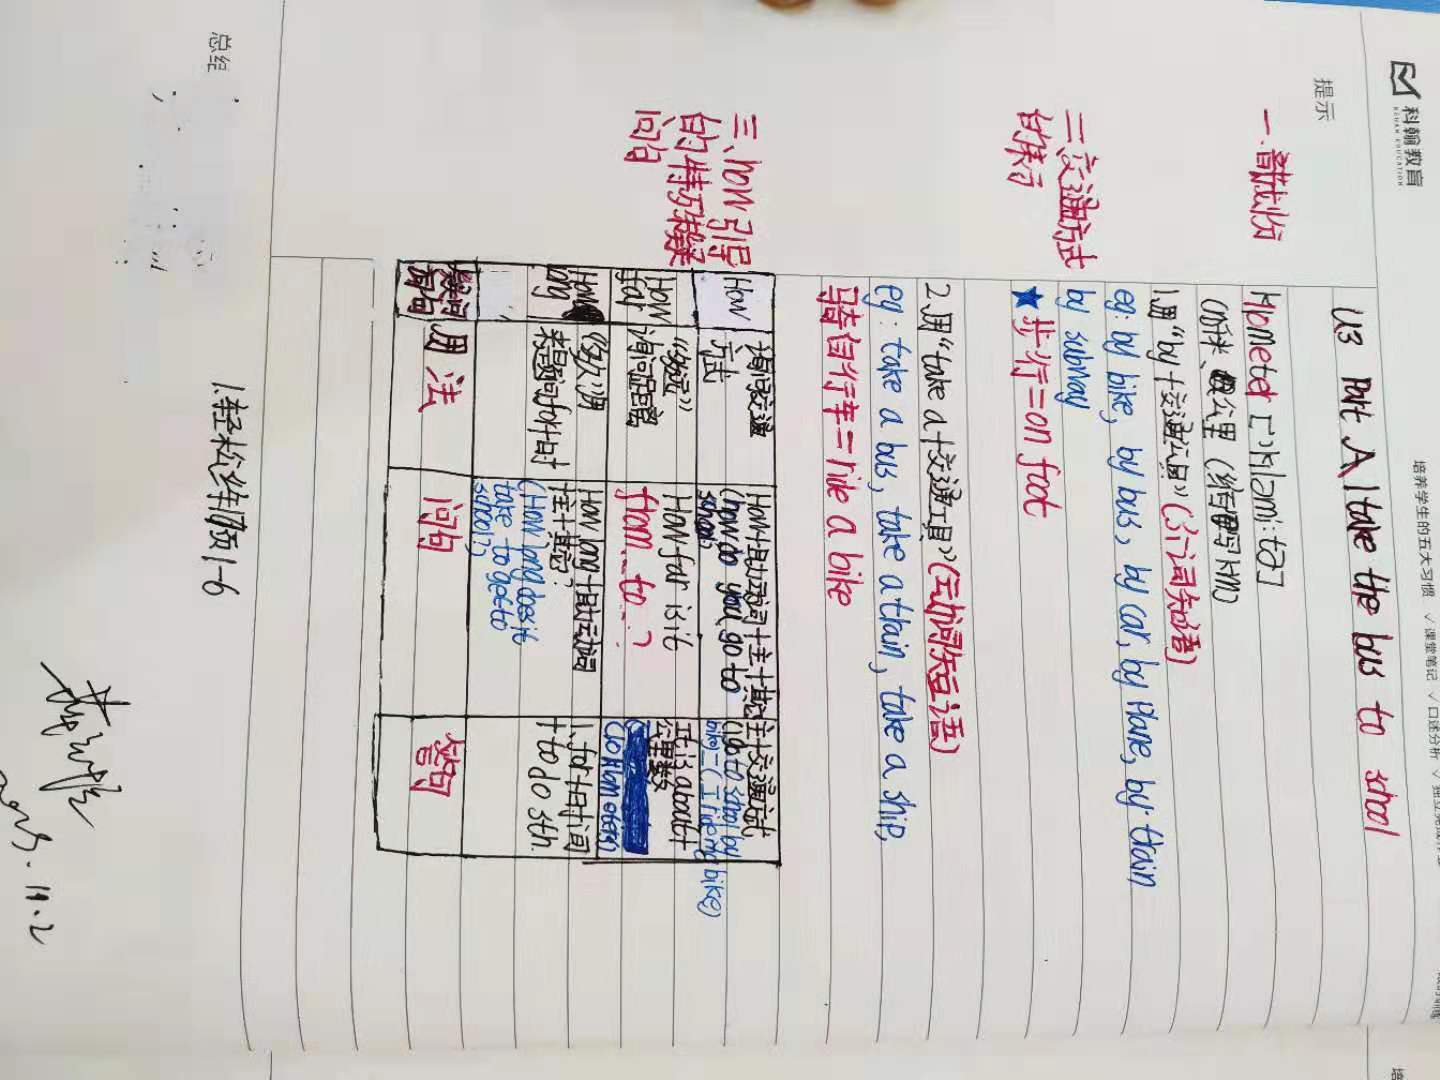 科翰教育
KEHAN EDUCATION
培养学生的五大习惯 √ 课堂笔记 √ 口述分析 √
提示
U3 Part A I take the bus to school
一.音成份
kilometer
(n)千米、公里 (缩写km)
二.交通方式的表示
1.用"by+交通工具"(介词短语)
eg: by bike, by bus, by car, by plane, by train
by subway
★步行=on foot
2.用"take a+交通工具"(动词短语)
eg: take a bus, take a train, take a ship,
骑自行车=ride a bike
三、how引导的特殊疑问句
How
询问交通方式
How+助动词+主+其它
(how do you go to school?
主+交通方式
(I go to school by bike)=(I ride my bike)
How far
"多远"
询问距离
How far is it
from...to...?
It is about+
公里数
How long
"多久"用来提问for+时
How long+助动词+主+其它?
(How long does it take to get to school?)
1.for+时间
+to do sth.
疑问句
用法
问句
答句
总结
1.轻松练1-6
11.2